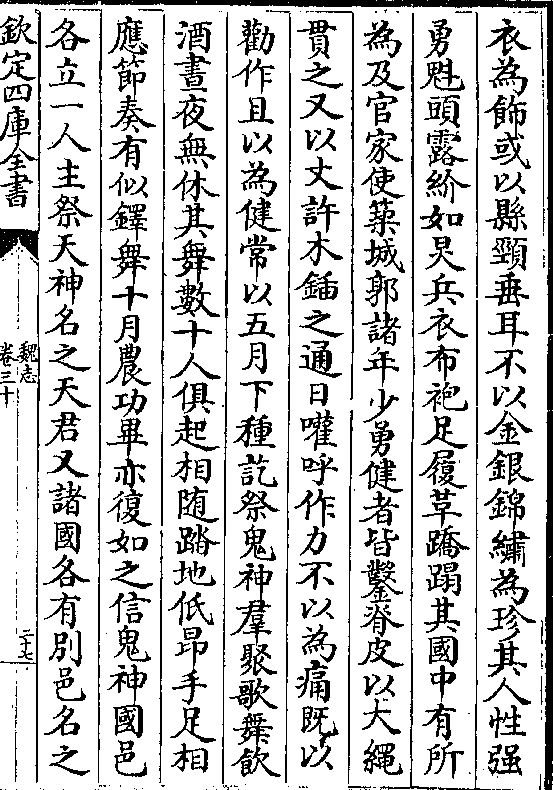 衣為飾或以縣頸垂耳不以金銀錦繡為珍其人性强
勇魁頭露紒如炅兵衣布袍足履草蹻蹋其國中有所
為及官家使築城郭諸年少勇健者皆鑿脊皮以大繩
貫之又以丈許木鍤之通日嚾呼作力不以為痛既以
勸作且以為健常以五月下種訖祭鬼神羣聚歌舞飲
酒晝夜無休其舞數十人俱起相随踏地低昂手足相
應節奏有似鐸舞十月農功畢亦復如之信鬼神國邑
各立一人主祭天神名之天君又諸國各有别邑名之
欽定四庫全書
魏志
卷三十
二十七